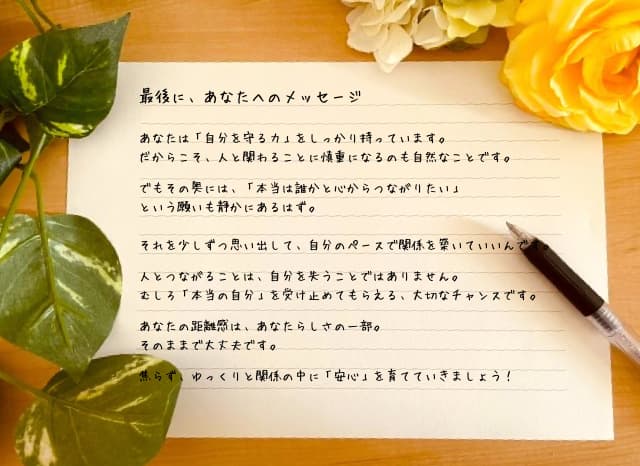 最後に、あなたへのメッセージ
あなたは「自分を守る力」をしっかり持っています。
だからこそ、人と関わることに慎重になるのも自然なことです。
でもその奥には、「本当は誰かと心からつながりたい」
という願いも静かにあるはず。
それを少しずつ思い出して、自分のペースで関係を築いていいんです。
人とつながることは、自分を失うことではありません。
むしろ「本当の自分」を受け止めてもらえる、大切なチャンスです。
あなたの距離感は、あなたらしさの一部。
そのままで大丈夫です。
焦らず、ゆっくりと関係の中に「安心」を育てていきましょう！